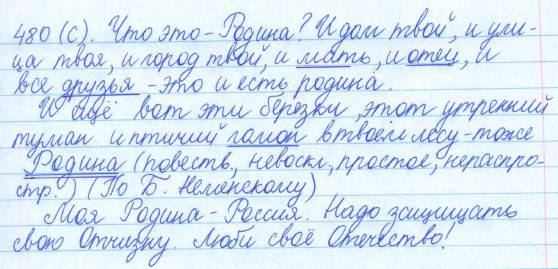 480 (с). Что это - Родина? И дом твой, и ули-
ца твоя, и город твой, и мать, и отец, и
все друзья - это и есть родина.
И ещё вот эти берёзки, этот утренний
туман и птичий гомон в твоём лесу - тоже
Родина (повеств., невоскл., простое, нераспро-
стр.) (По Б. Неменскому)
Моя Родина - Россия. Надо защищать
свою Отчизну. Люби своё Отечество!